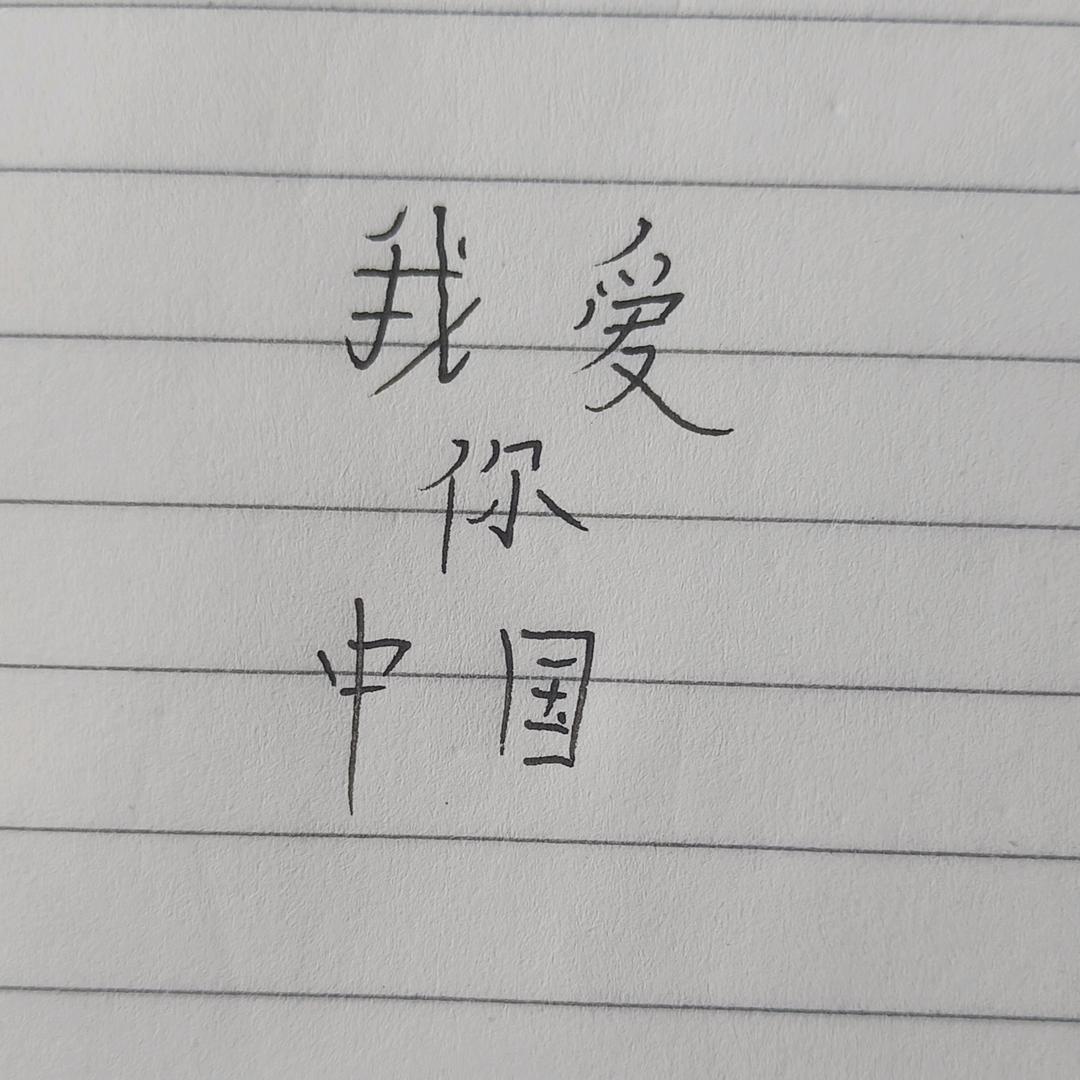 我爱
你
中国